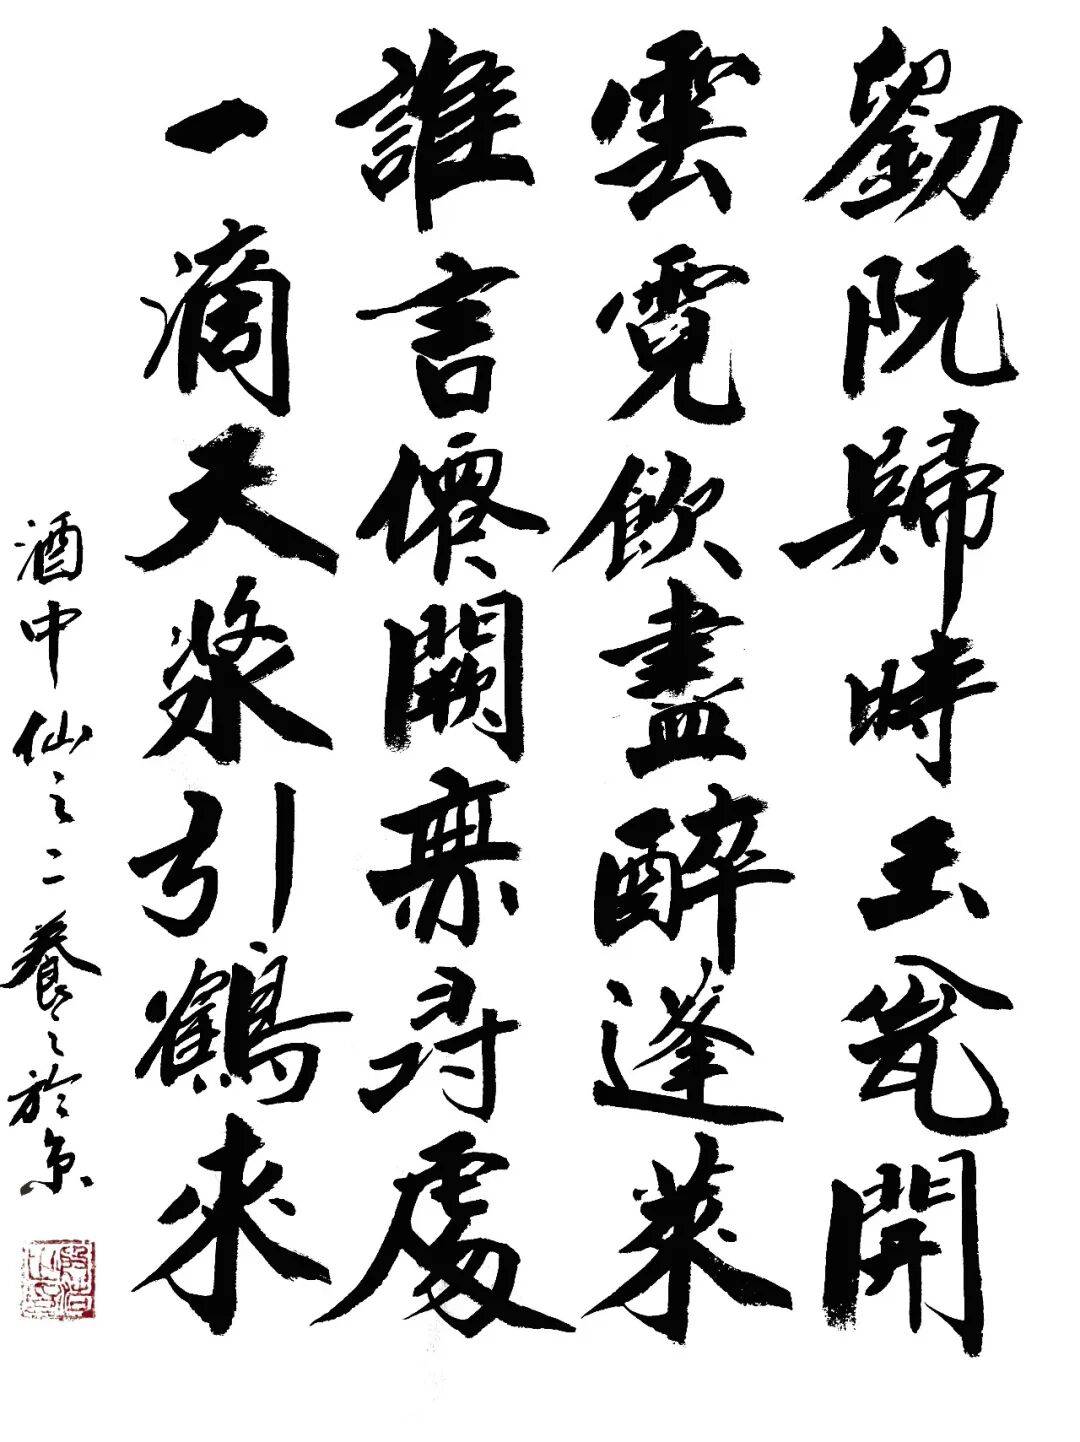 劉阮歸時玉瓮開
雲霓飲盡醉蓬萊
誰言僊闕無尋處
一滴天漿引鶴來
酒中仙之二養之於京